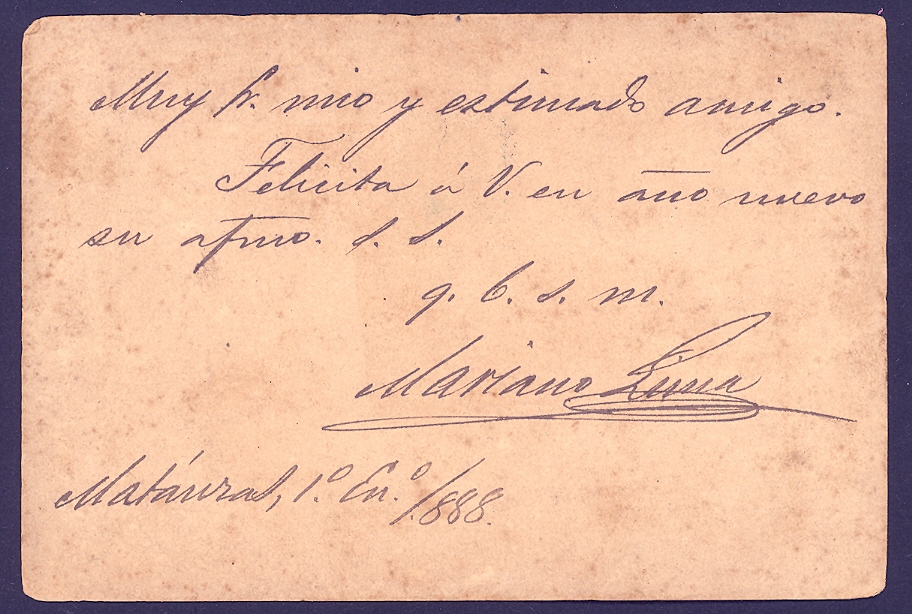 Muy Sr. mio y estimado amigo.
Felicita á V. en año nuevo
su afmo. s. s.
q. b. s. m.
Mariano Luna
Matánzas, 1º. En.º /888.